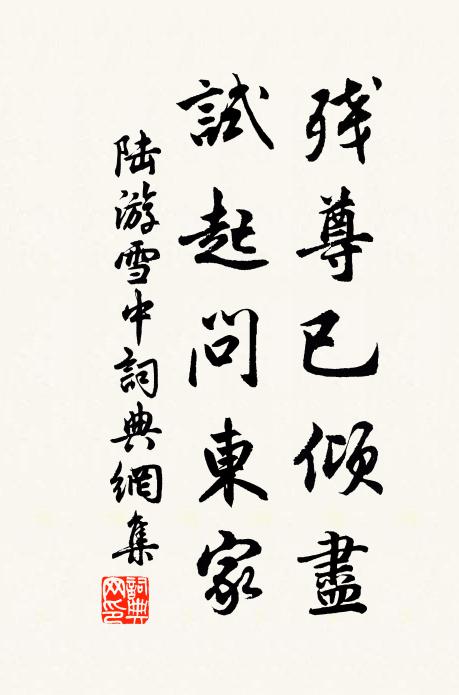 残尊已倾盡
試起問東家
陆游雪中詞典網集
詞典网印